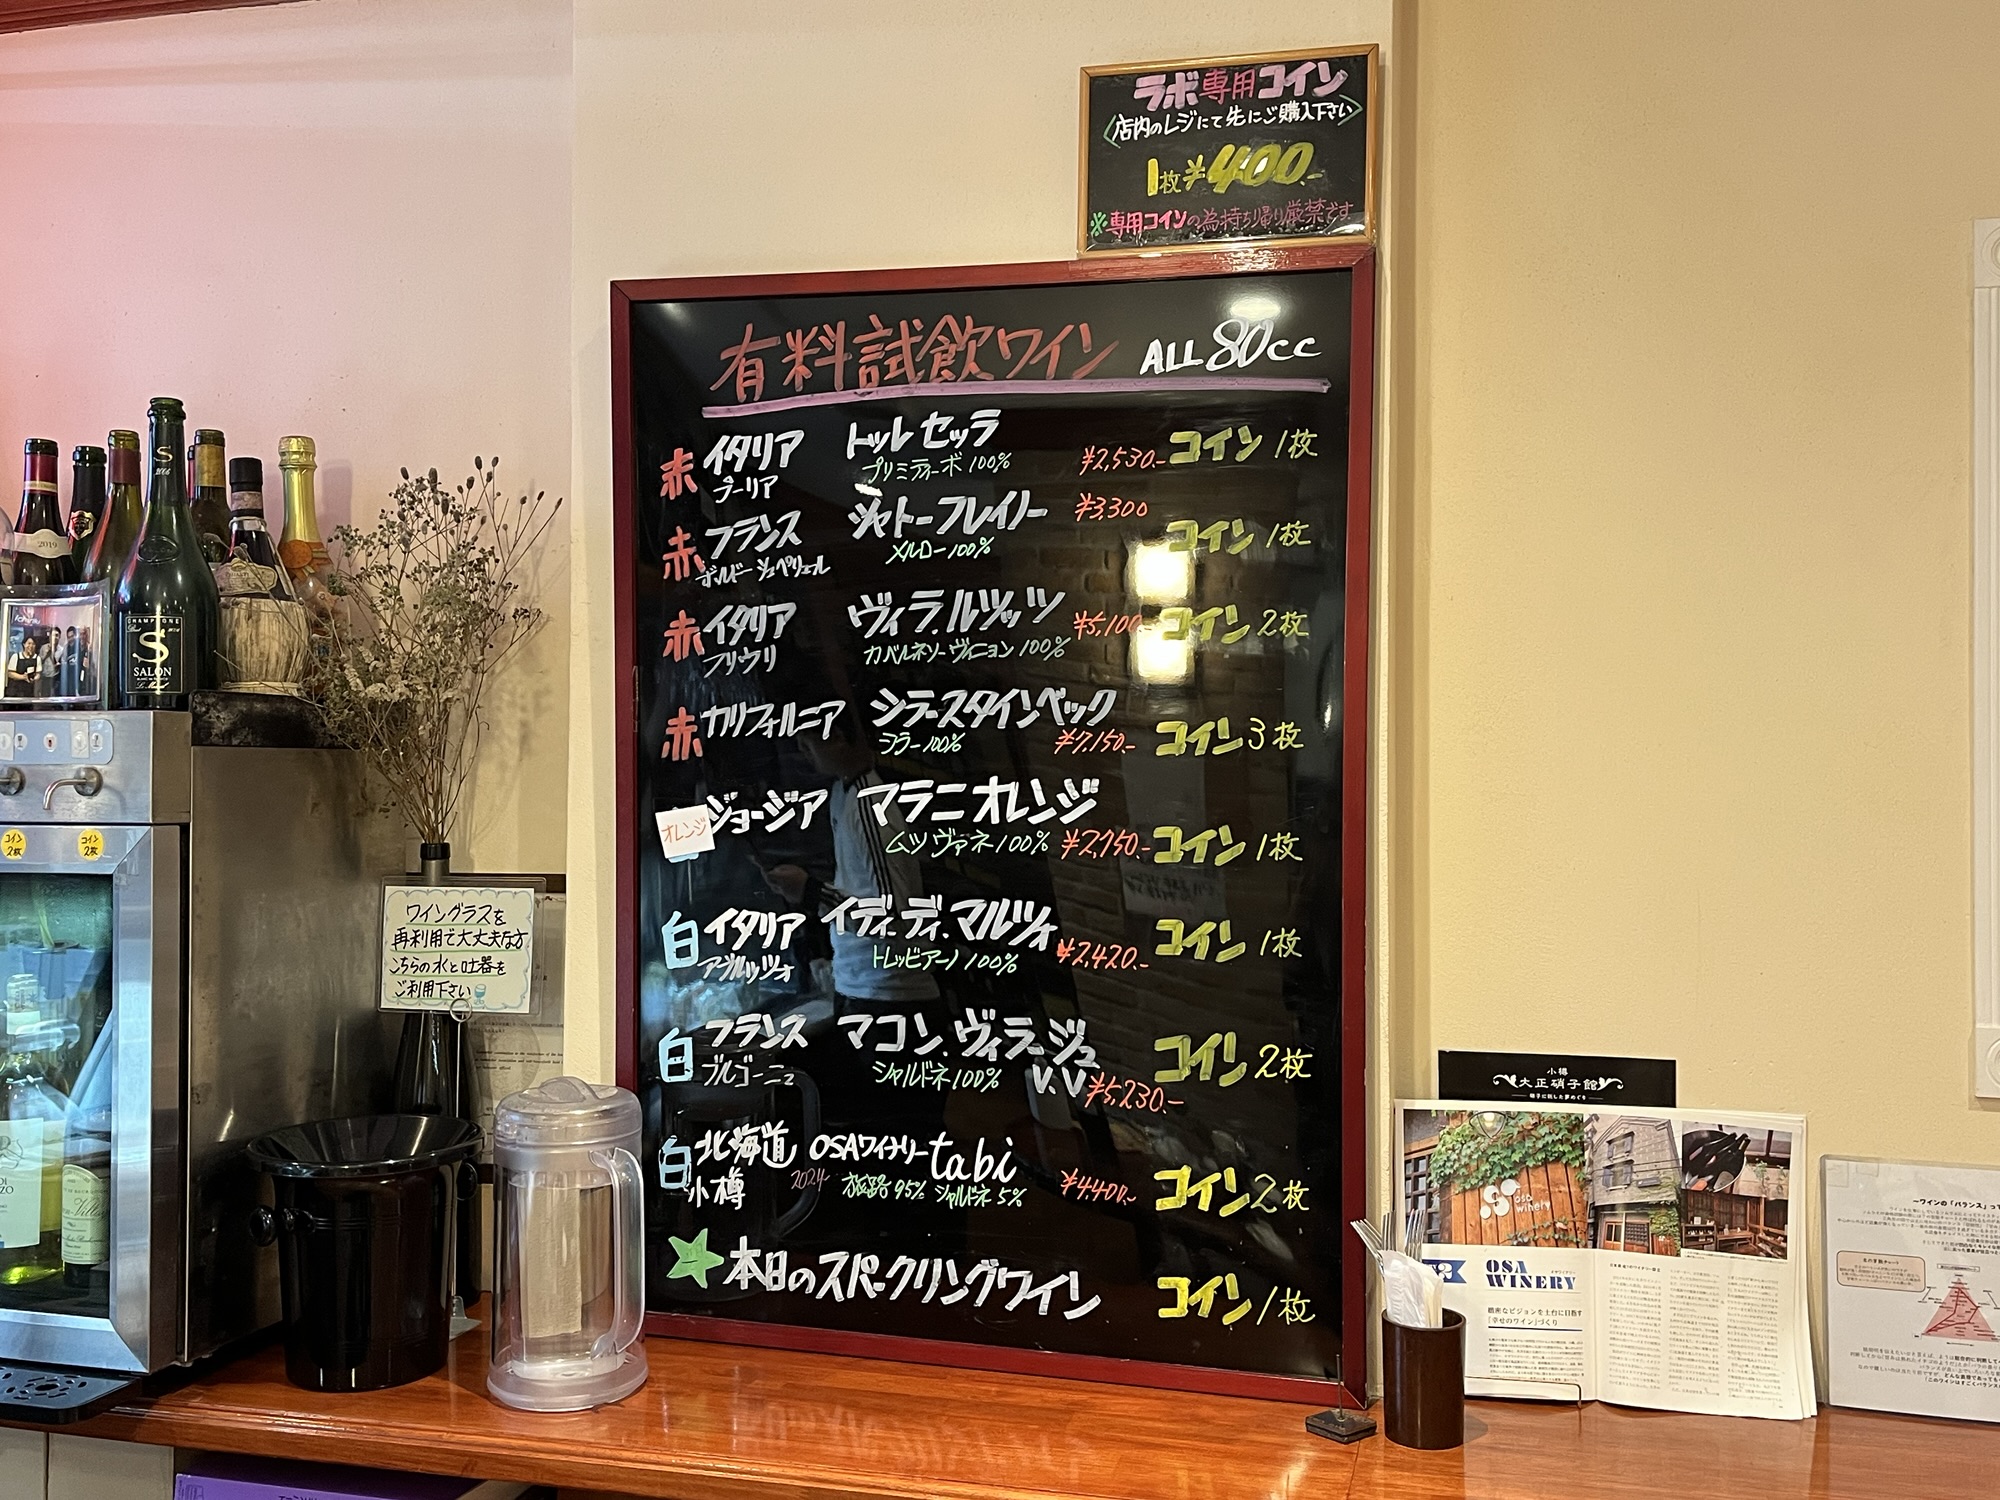 ラボ専用コイン
〈店内のレジにて先にご購入下さい〉
1枚¥400.-
※専用コインの為持ち帰り厳禁です
有料試飲ワイン ALL 80cc
赤 イタリア トッレ セッラ
プーリア プリミティーボ 100% ¥2,530.- コイン 1枚
赤 フランス シャトーフレイノー ¥3,300
ボルドー シュペリュール メルロー 100% コイン 1枚
赤 イタリア ヴィラ.ルッツッツ ¥5,100 コイン 2枚
フリウリ カベルネソーヴィニョン 100%
赤 カリフォルニア シラースタインベック
シラー 100% ¥7,150.- コイン 3枚
オレンジ ジョージア マラニ オレンジ
ムツヴァネ 100% ¥2,750.- コイン 1枚
白 イタリア イディ.ディ.マルツォ
アブルッツォ トレッビアーノ 100% ¥2,420.- コイン 1枚
白 フランス マコン.ヴィラージュ V.V
ブルゴーニュ シャルドネ 100% ¥5,230.- コイン 2枚
白 北海道 OSAワイナリー tabi
小樽 2024 旅路 95% シャルドネ 5% ¥4,400.- コイン 2枚
★本日のスパークリングワイン コイン 1枚
ワイングラスを
再利用で大丈夫な方
こちらの水と吐器を
ご利用下さい
コイン
2枚
コイン
2枚
2019
S
2006
CHAMPAGNE
S
SALON
小樽
大正硝子館
硝子に託した夢めぐり
osa
winery
OSA
WINERY
緻密なビジョンを土台に目指す
「幸せのワイン」づくり
ーワインの「バランス」って